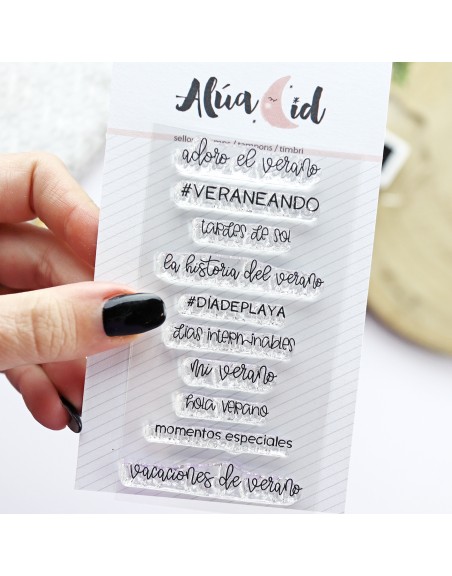 Alúa Cid
sellos / stamps / tampons / timbri
adoro el verano
#VERANEANDO
tardes de sol
la historia del verano
#DÍADEPLAYA
días interminables
mi verano
hola verano
momentos especiales
vacaciones de verano